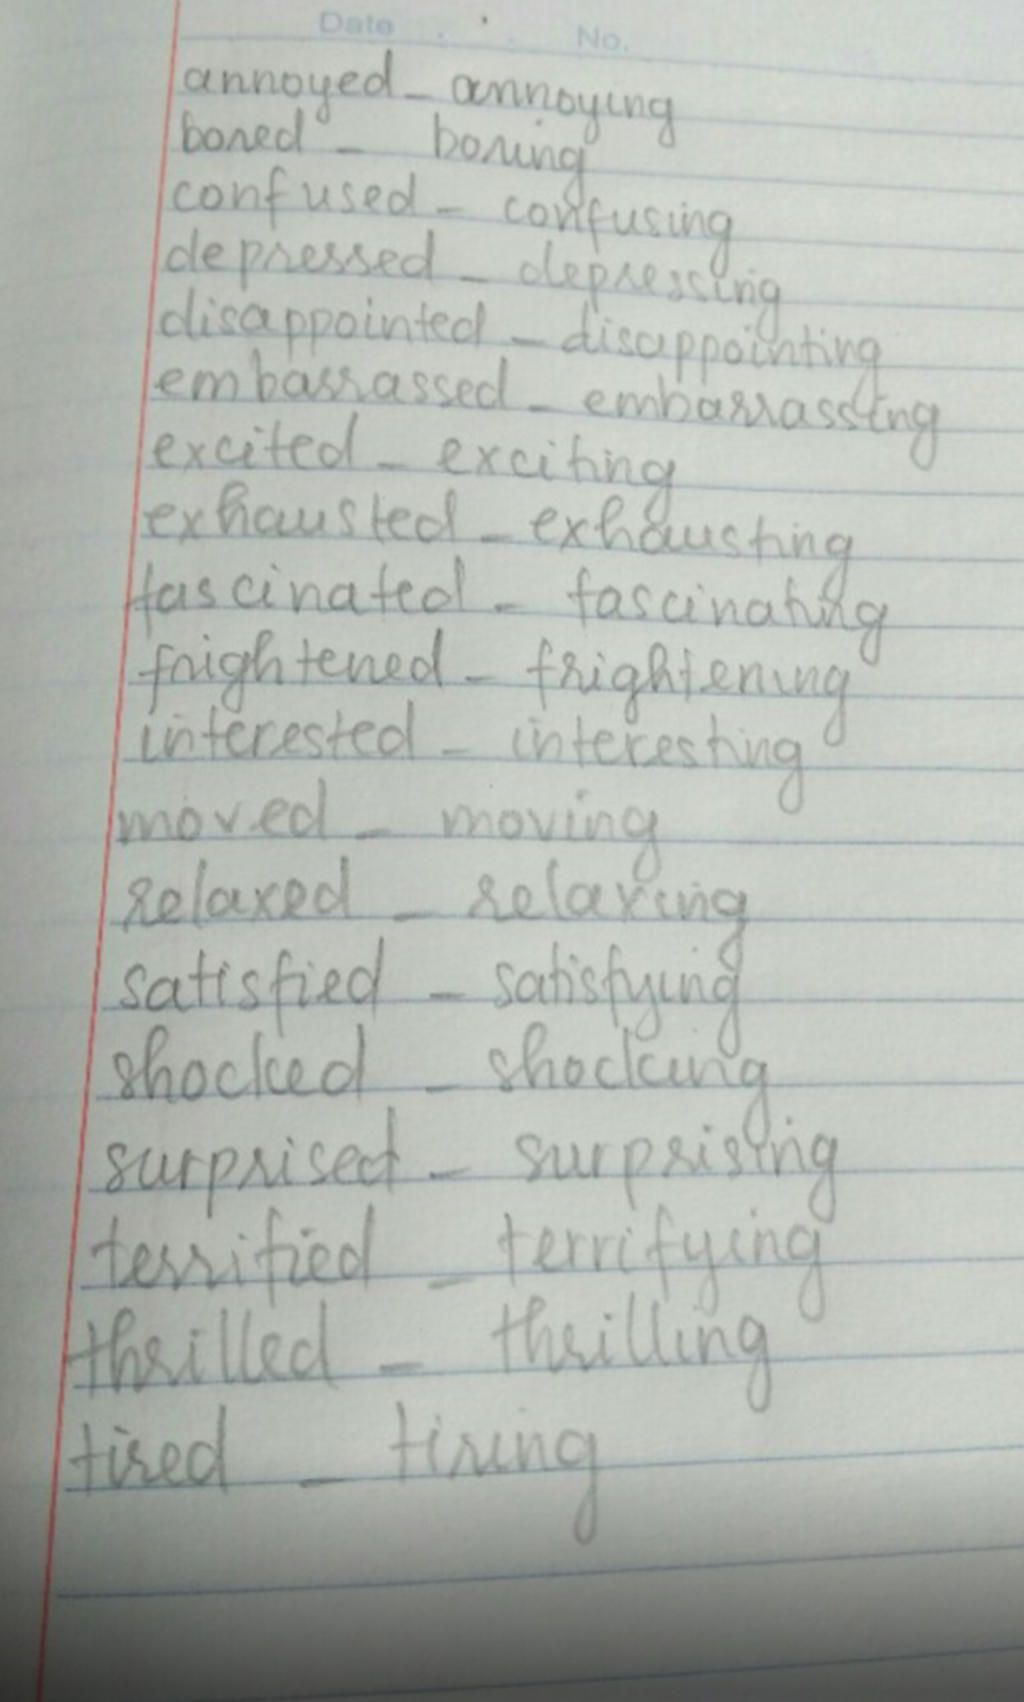 Date . . . No.
annoyed - annoying
bored - boring
confused - confusing
depressed - depressing
disappointed - disappointing
embarrassed - embarrassing
excited - exciting
exhausted - exhausting
fascinated - fascinating
frightened - frightening
interested - interesting
moved - moving
relaxed - relaxing
satisfied - satisfying
shocked - shocking
surprised - surprising
terrified - terrifying
thrilled - thrilling
tired - tiring